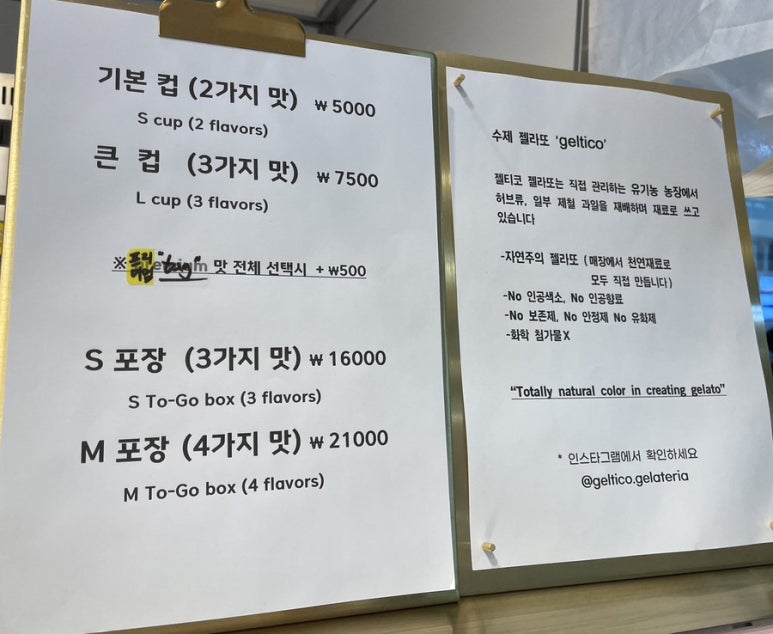 기본 컵 (2가지 맛) ₩ 5000
S cup (2 flavors)
큰 컵 (3가지 맛) ₩ 7500
L cup (3 flavors)
※ 프리미엄 맛 전체 선택시 + ₩500
S 포장 (3가지 맛) ₩ 16000
S To-Go box (3 flavors)
M 포장 (4가지 맛) ₩ 21000
M To-Go box (4 flavors)
수제 젤라또 'geltico'
젤티코 젤라또는 직접 관리하는 유기농 농장에서
허브류, 일부 제철 과일을 재배하며 재료로 쓰고
있습니다
-자연주의 젤라또 (매장에서 천연재료로
모두 직접 만듭니다)
-No 인공색소, No 인공향료
-No 보존제, No 안정제 No 유화제
-화학 첨가물X
“Totally natural color in creating gelato”
* 인스타그램에서 확인하세요
@geltico.gelateria